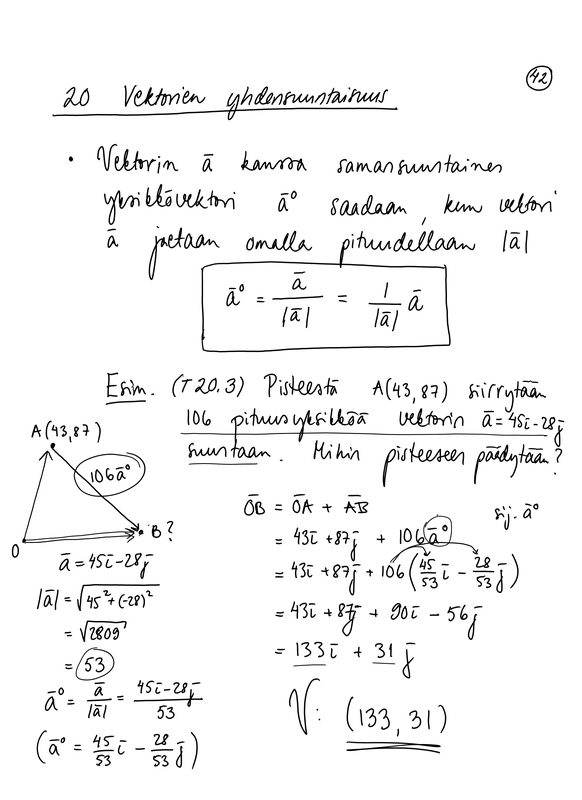 42
20 Vektorien yhdensuuntaisuus
• Vektorin ā kanssa samansuuntainen
yksikkövektori ā° saadaan, kun vektori
ā jaetaan omalla pituudellaan |ā|
ā° = ā/|ā| = 1/|ā| ā
Esim. (T20.3) Pisteestä A(43,87) siirrytään
106 pituusyksikköä vektorin ā = 45ī - 28j̄
suuntaan. Mihin pisteeseen päädytään?
A(43,87)
106ā°
B?
O
ā = 45ī - 28j̄
|ā| = √(45² + (-28)²)
= √2809
= 53
ā° = ā/|ā| = (45ī - 28j̄)/53
(ā° = 45/53 ī - 28/53 j̄)
OB = OA + AB
sij. ā°
= 43ī + 87j̄ + 106ā°
= 43ī + 87j̄ + 106(45/53 ī - 28/53 j̄)
= 43ī + 87j̄ + 90ī - 56j̄
= 133ī + 31j̄
V: (133, 31)